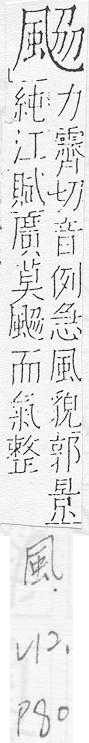 䬅力霽切音例急風貌郭景
純江賦廣莫䬅而氣整
風.
V12.
P80